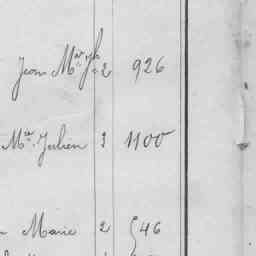 Jean Mie Jh 2 926
Mie Julien 3 1100
Marie 2 546